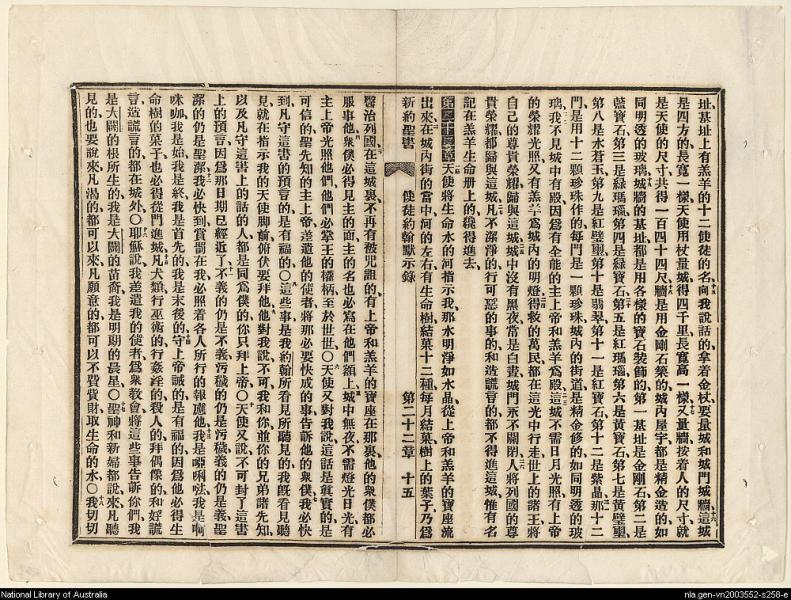 址基址上有羔羊的十二使徒的名向我說話的拿着金杖要量城和城門城牆這城
是四方的長寬一樣天使用杖量城得四千里長寬高一樣又量牆按着人的尺寸就
是天使的尺寸共得一百四十四尺牆是用金剛石築的城內屋宇都是精金造的如
同明透的玻璃城牆的基址都是用各樣的寶石裝飾的第一基址是金剛石第二是
藍寶石第三是綠瑪瑙第四是綠寶石第五是紅瑪瑙第六是黃寶石第七是黃璧璽
第八是水蒼玉第九是紅璧璽第十是翡翠第十一是紅寶石第十二是紫晶那十二
門是用十二顆珍珠作的每門是一顆珍珠城內的街道是精金修的如同明透的玻
璃我不見城中有殿因爲有全能的主上帝和羔羊爲殿這城不需日月光照有上帝
的榮耀光照又有羔羊爲城內的明燈得救的萬民都在這光中行走世上的諸王將
自己的尊貴榮耀歸與這城城中沒有黑夜常是白晝城門永不關閉人將列國的尊
貴榮耀都歸與這城凡不潔淨的行可惡的事的和造謊言的都不得進這城惟有名
記在羔羊生命册上的纔得進去
第二十二章天使將生命水的河指示我那水明淨如水晶從上帝和羔羊的寶座流
出來在城內街的當中河的左右有生命樹結菓十二種每月結菓樹上的葉子乃爲
新約聖書 使徒約翰默示錄 第二十二章 十五
醫治列國在這城裏不再有被咒詛的有上帝和羔羊的寶座在那裏他的衆僕都必
服事他衆僕必得見主的面主的名也必寫在他們額上城中無夜不需燈光日光有
主上帝光照他們他們必掌王的權柄至於世世〇天使又對我說這話是眞實的是
可信的聖先知的主上帝差遣他的使者將那必要快成的事告訴他的衆僕我必快
到凡守這書的預言的是有福的〇這些事是我約翰所看見所聽見的我旣看見聽
見就在指示我的天使脚前俯伏要拜他他對我說不可我和你並你的兄弟諸先知
以及凡守這書上的話的人都是同爲僕的你只拜上帝〇天使又說不可封了這書
上的預言因爲那日期已經近了不義的仍是不義污穢的仍是污穢義的仍是義聖
潔的仍是聖潔我必快到賞罰在我必照着各人所行的報應他我是啞唎㕰我是啊
咪咖我是始我是終我是首先的我是末後的守上帝誡的是有福的因爲他必得生
命樹的菓子也必得從門進城凡犬類行巫術的行姦淫的殺人的拜偶像的和好謊
言造謊言的都在城外〇耶穌說我差遣我的使者爲衆敎會將這些事告訴你們我
是大闢的根所生的我是大闢的苗裔我是明朗的晨星〇聖神和新婦都說來凡聽
見的也要說來凡渴的都可以來凡願意的都可以不費貲財取生命的水〇我切切
National Library of Australia
nla.gen-vn2003552-s258-e